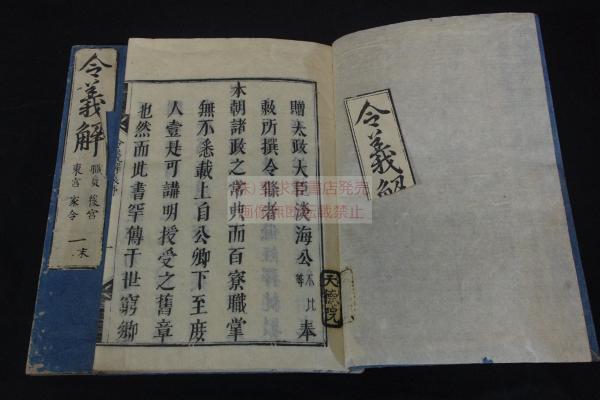 令義解
天德院
贈太政大臣淡海公不比等奉
敕所撰令條者
本朝諸政之常典而百寮職掌
無不悉載上自公卿下至庶
人壹是可講明授受之舊章
也然而此書罕傳于世窮鄉
令義解
職員 後宮
東宮 家令
一末
書店発売
画像無断転載禁止